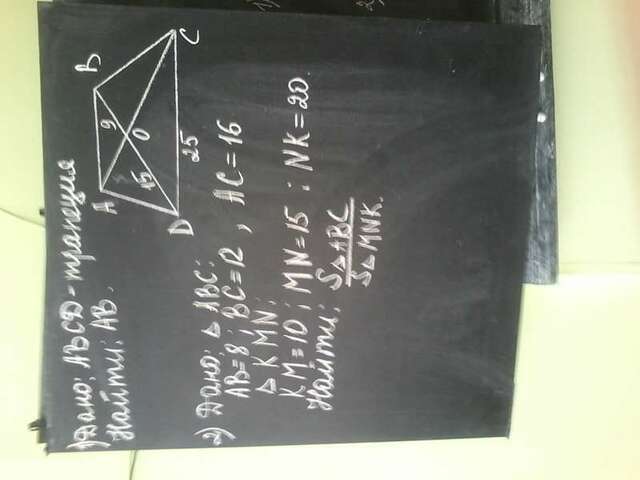 1) Дано: ABCD - трапеция
Найти: AB.
A
B
C
D
O
9
15
25
2) Дано: △ ABC;
AB=8; BC=12, AC=16
△ KMN;
KM=10; MN=15; NK=20
Найти: S△ABC
S△MNK.